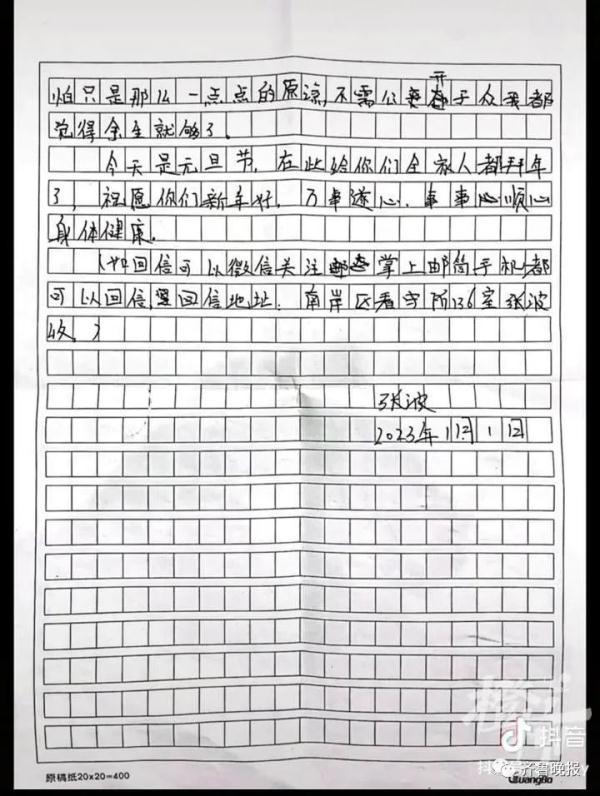 怕只是那么一点点的原谅,不需公开于众我都
觉得余生就够了.
今天是元旦节,在此给你们全家人都拜年
了,祝愿你们新年好,万事遂心,事事顺心
身体健康.
(如回信可以微信关注掌上邮筒手机都
可以回信,回信地址:南岸区看守所136室张波
收,)
张波
2023年1月1日
原稿纸20×20=400
抖音
齐鲁晚报
GuangBo